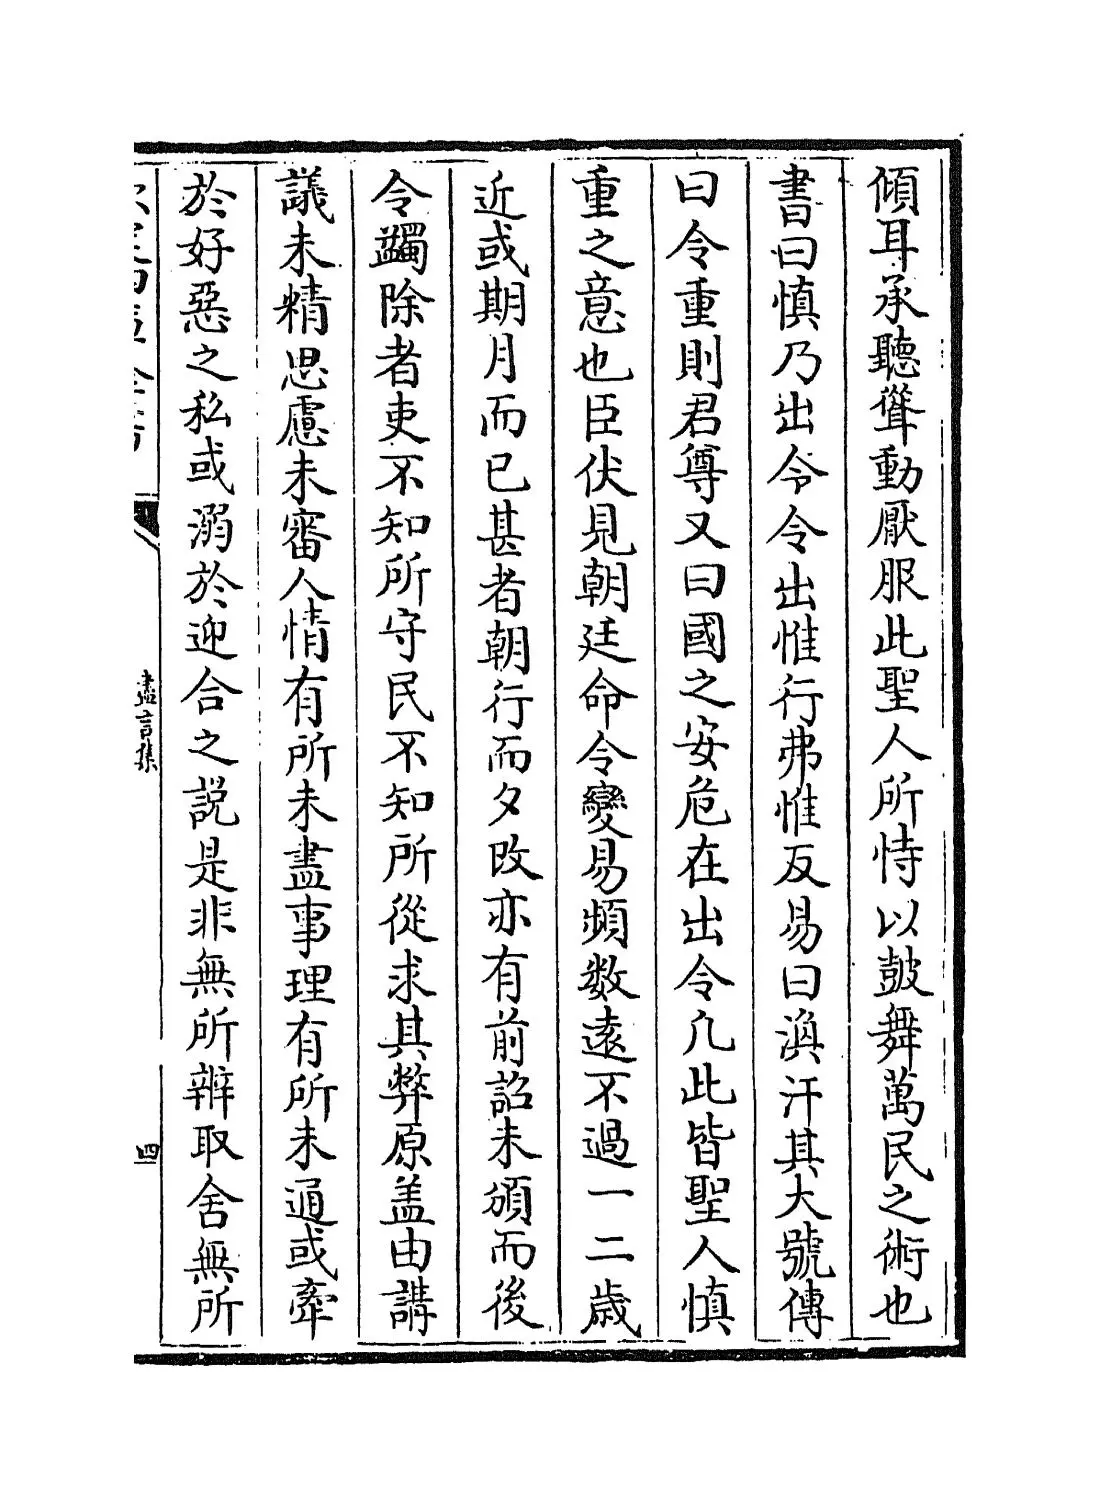 傾耳承聽聳動厭服此聖人所恃以鼓舞萬民之術也
書曰慎乃出令令出惟行弗惟反易曰渙汗其大號傳
曰令重則君尊又曰國之安危在出令凢此皆聖人慎
重之意也臣伏見朝廷命令變易頻數逺不過一二歳
近或期月而已甚者朝行而夕改亦有前詔未頒而後
令蠲除者吏不知所守民不知所從求其弊原盖由講
議未精思慮未審人情有所未盡事理有所未通或牽
於好惡之私或溺於迎合之説是非無所辨取舍無所
盡言集
四